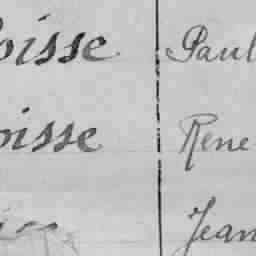 oisse Paul
oisse Rene
Jean